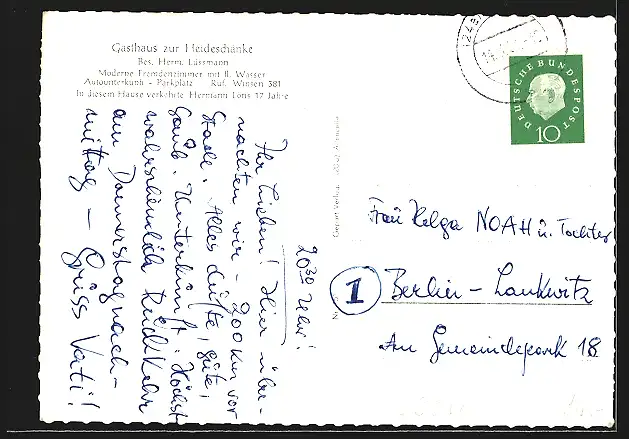 Gasthaus zur Heideschänke
Bes. Herm. Lüssmann
Moderne Fremdenzimmer mit fl. Wasser
Autounterkunft - Parkplatz Ruf: Winsen 381
In diesem Hause verkehrte Hermann Löns 17 Jahre
DEUTSCHE BUNDESPOST
10
20³⁰ Uhr!
Ihr Lieben! Hier über-
nachten wir - 200 km vor
Stade. Alles dufte, gute,
saub. Unterkunft. Höchst
wahrscheinlich Rückkehr
am Donnerstagnach-
mittag - Gruss Vati!
Frau Helga NOAH u. Tochter
1 Berlin - Lankwitz
Am Gemeindepark 18